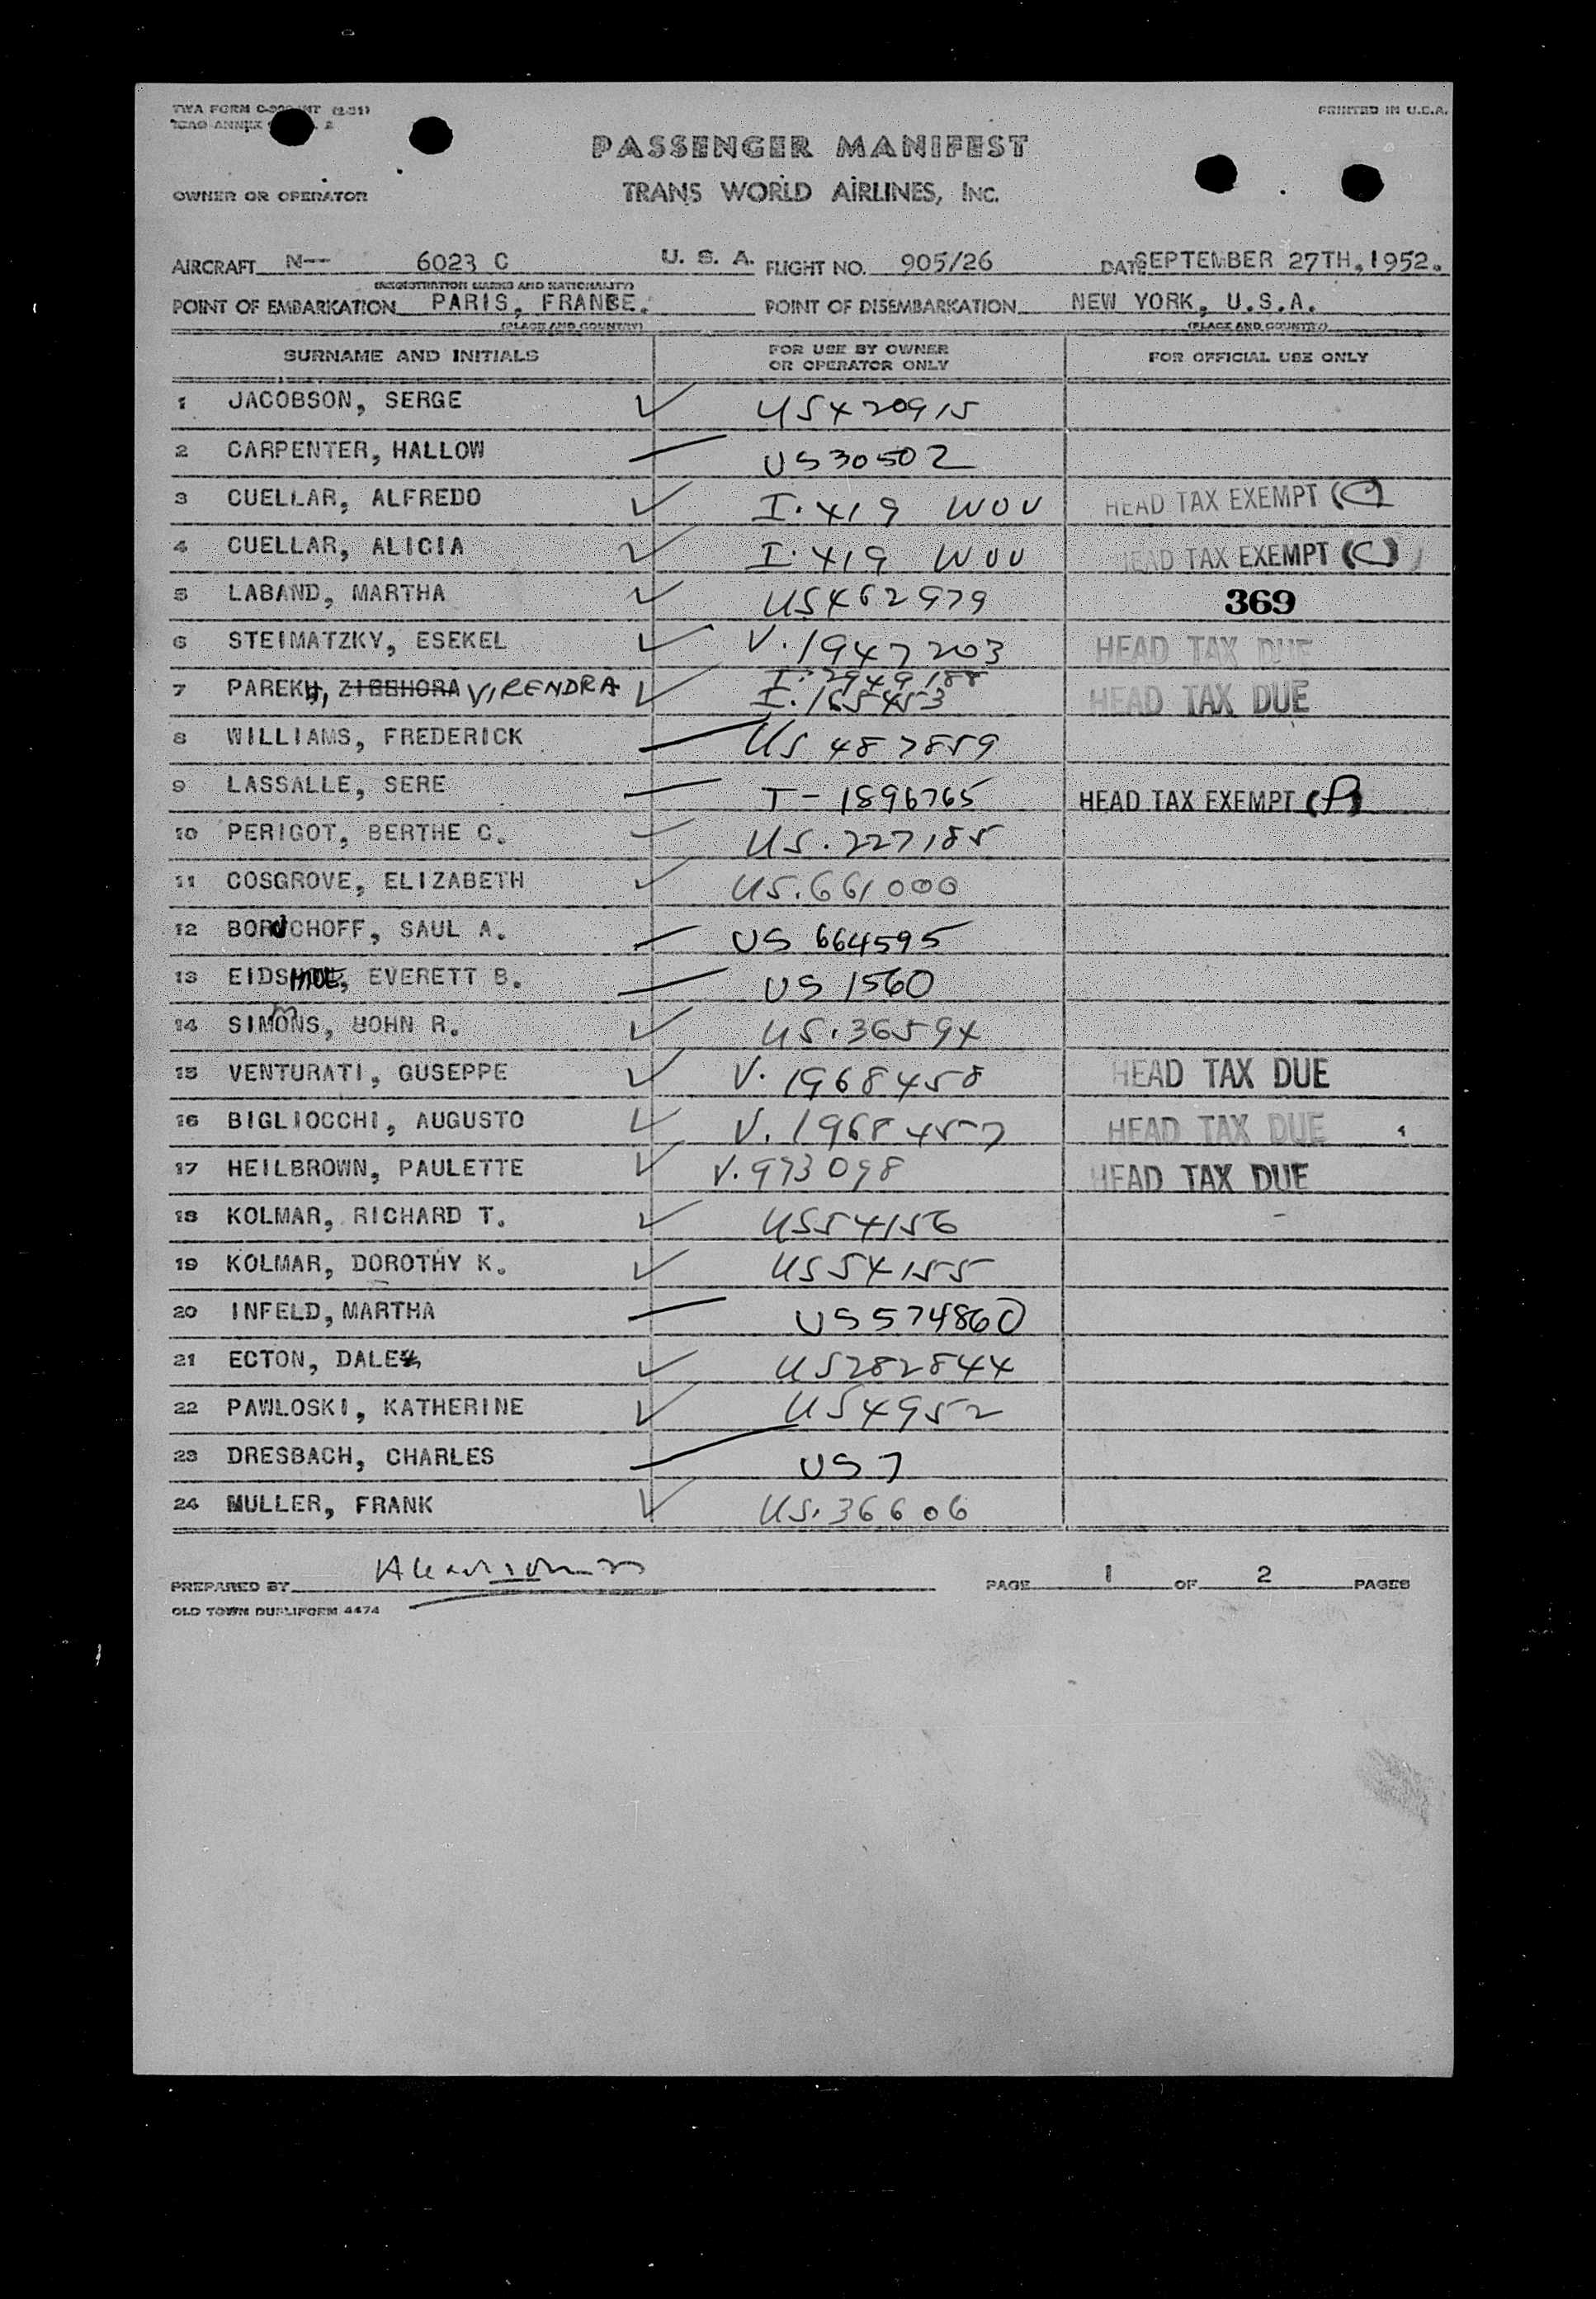 TWA FORM (2-51)
ICAO ANNEX 2
PRINTED IN U.S.A.
PASSENGER MANIFEST
OWNER OR OPERATOR
TRANS WORLD AIRLINES, INC.
AIRCRAFT N-- 6023 C U. S. A. FLIGHT NO. 905/26 DATE SEPTEMBER 27TH, 1952.
(REGISTRATION MARKS AND NATIONALITY)
POINT OF EMBARKATION PARIS, FRANCE. POINT OF DISEMBARKATION NEW YORK, U.S.A.
(PLACE AND COUNTRY) (PLACE AND COUNTRY)
SURNAME AND INITIALS FOR USE BY OWNER OR OPERATOR ONLY FOR OFFICIAL USE ONLY
1 JACOBSON, SERGE ✓ US420915
2 CARPENTER, HALLOW — US30502
3 CUELLAR, ALFREDO ✓ I.419 WOU HEAD TAX EXEMPT (C)
4 CUELLAR, ALICIA ✓ I.419 WOU HEAD TAX EXEMPT (C)
5 LABAND, MARTHA ✓ US462979 369
6 STEIMATZKY, ESEKEL ✓ V.1947203 HEAD TAX DUE
7 PAREKH, ZIBBHORA VIRENDRA ✓ I.2949188 HEAD TAX DUE
I.165453
8 WILLIAMS, FREDERICK — US 487859
9 LASSALLE, SERE — T-1896765 HEAD TAX EXEMPT
10 PERIGOT, BERTHE C. ✓ US.227185
11 COSGROVE, ELIZABETH ✓ US.661000
12 BORUCHOFF, SAUL A. — US 664595
13 EVERETT B. — US 1560
14 SIMONS, JOHN R. ✓ US.36594
15 VENTURATI, GUSEPPE ✓ V.1968458 HEAD TAX DUE
16 BIGLIOCCHI, AUGUSTO ✓ V.1968457 HEAD TAX DUE
17 HEILBROWN, PAULETTE ✓ V.973098 HEAD TAX DUE
18 KOLMAR, RICHARD T. ✓ US54156
19 KOLMAR, DOROTHY K. ✓ US54155
20 INFELD, MARTHA — US574860
21 ECTON, DALE ✓ US282844
22 PAWLOSKI, KATHERINE ✓ US4952
23 DRESBACH, CHARLES — US7
24 MULLER, FRANK ✓ US.36606
PREPARED BY PAGE 1 OF 2 PAGES
OLD TOWN DUPLIFORM 4474